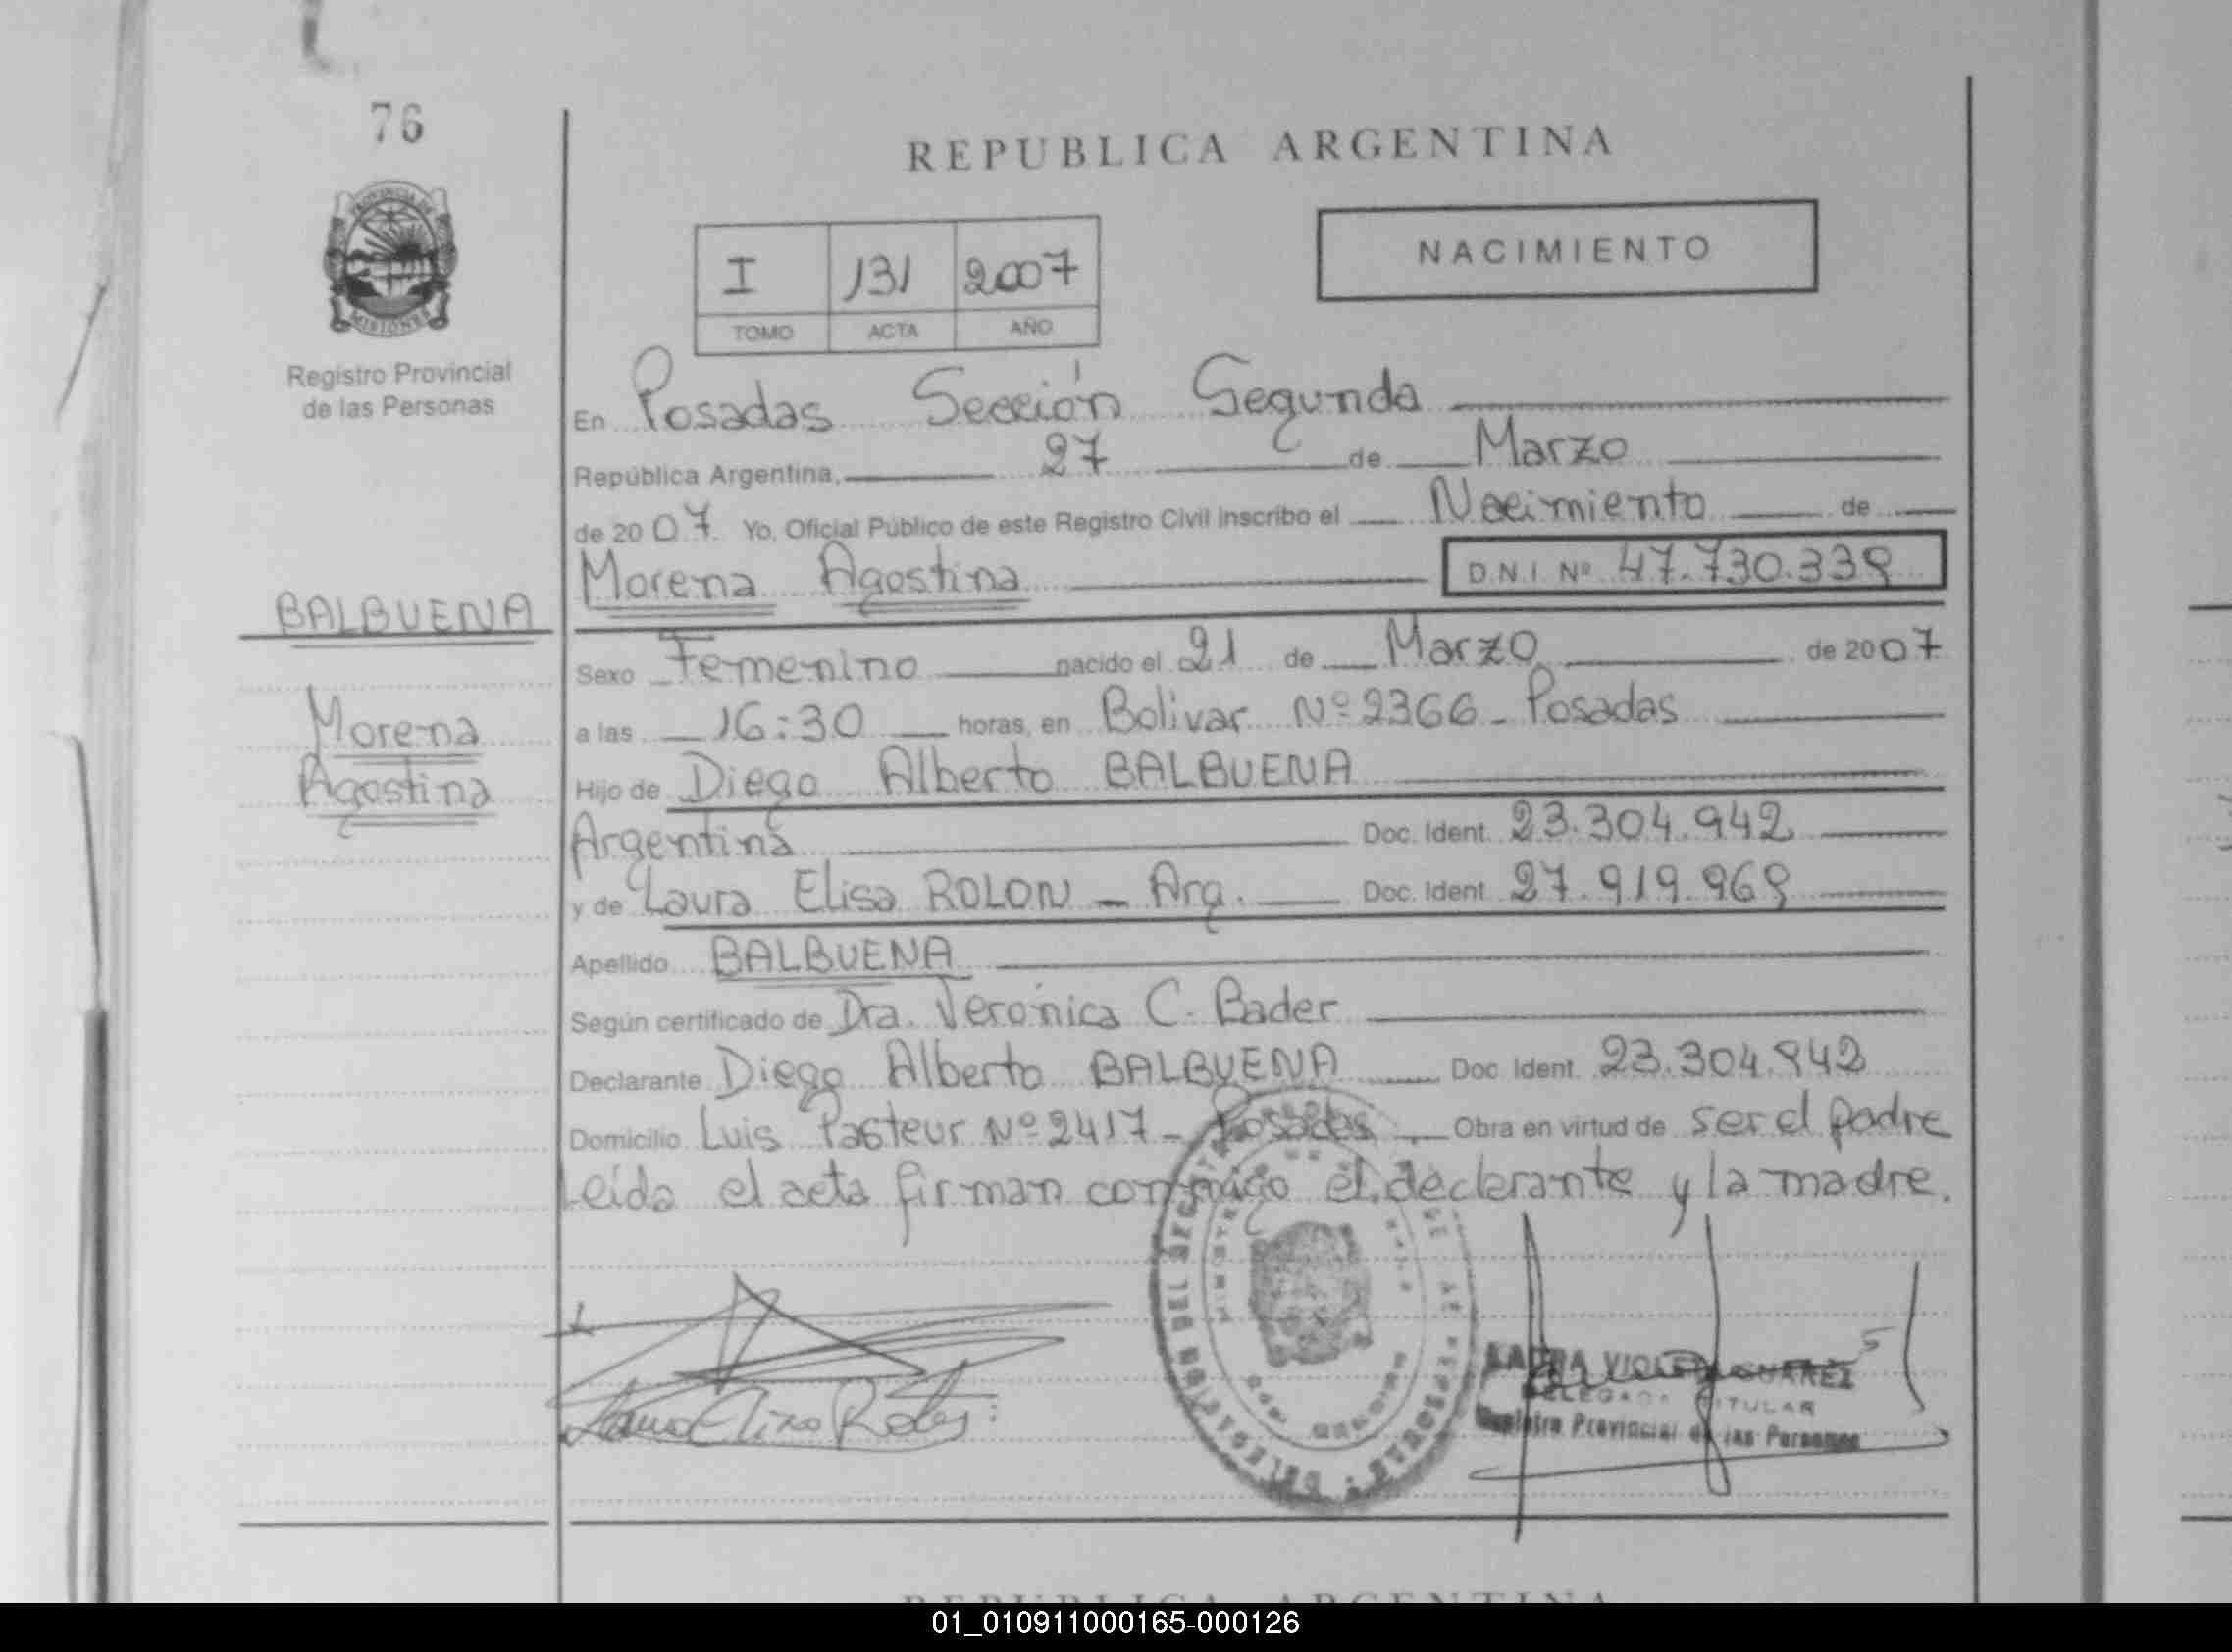 76
REPUBLICA ARGENTINA
PROVINCIA DE
MISIONES
Registro Provincial
de las Personas
I 131 2007
TOMO ACTA AÑO
NACIMIENTO
En Posadas Sección Segunda
República Argentina, 27 de Marzo
de 2007. Yo, Oficial Público de este Registro Civil inscribo el Nacimiento de
Morena Agostina D.N.I. Nº 47.730.339
BALBUENA
Morena
Agostina
Sexo Femenino nacido el 21 de Marzo de 2007
a las 16:30 horas, en Bolivar Nº 2366 - Posadas
Hijo de Diego Alberto BALBUENA
Argentina Doc. Ident. 23.304.942
y de Laura Elisa ROLON - Arg. Doc. Ident. 27.919.969
Apellido BALBUENA
Según certificado de Dra. Verónica C. Bader
Declarante Diego Alberto BALBUENA Doc. Ident. 23.304.942
Domicilio Luis Pasteur Nº 2417 - Posadas Obra en virtud de ser el padre
Leída el acta firman conmigo el declarante y la madre.
DELEGADA TITULAR
Registro Provincial de las Personas
REPUBLICA ARGENTINA
01_010911000165-000126